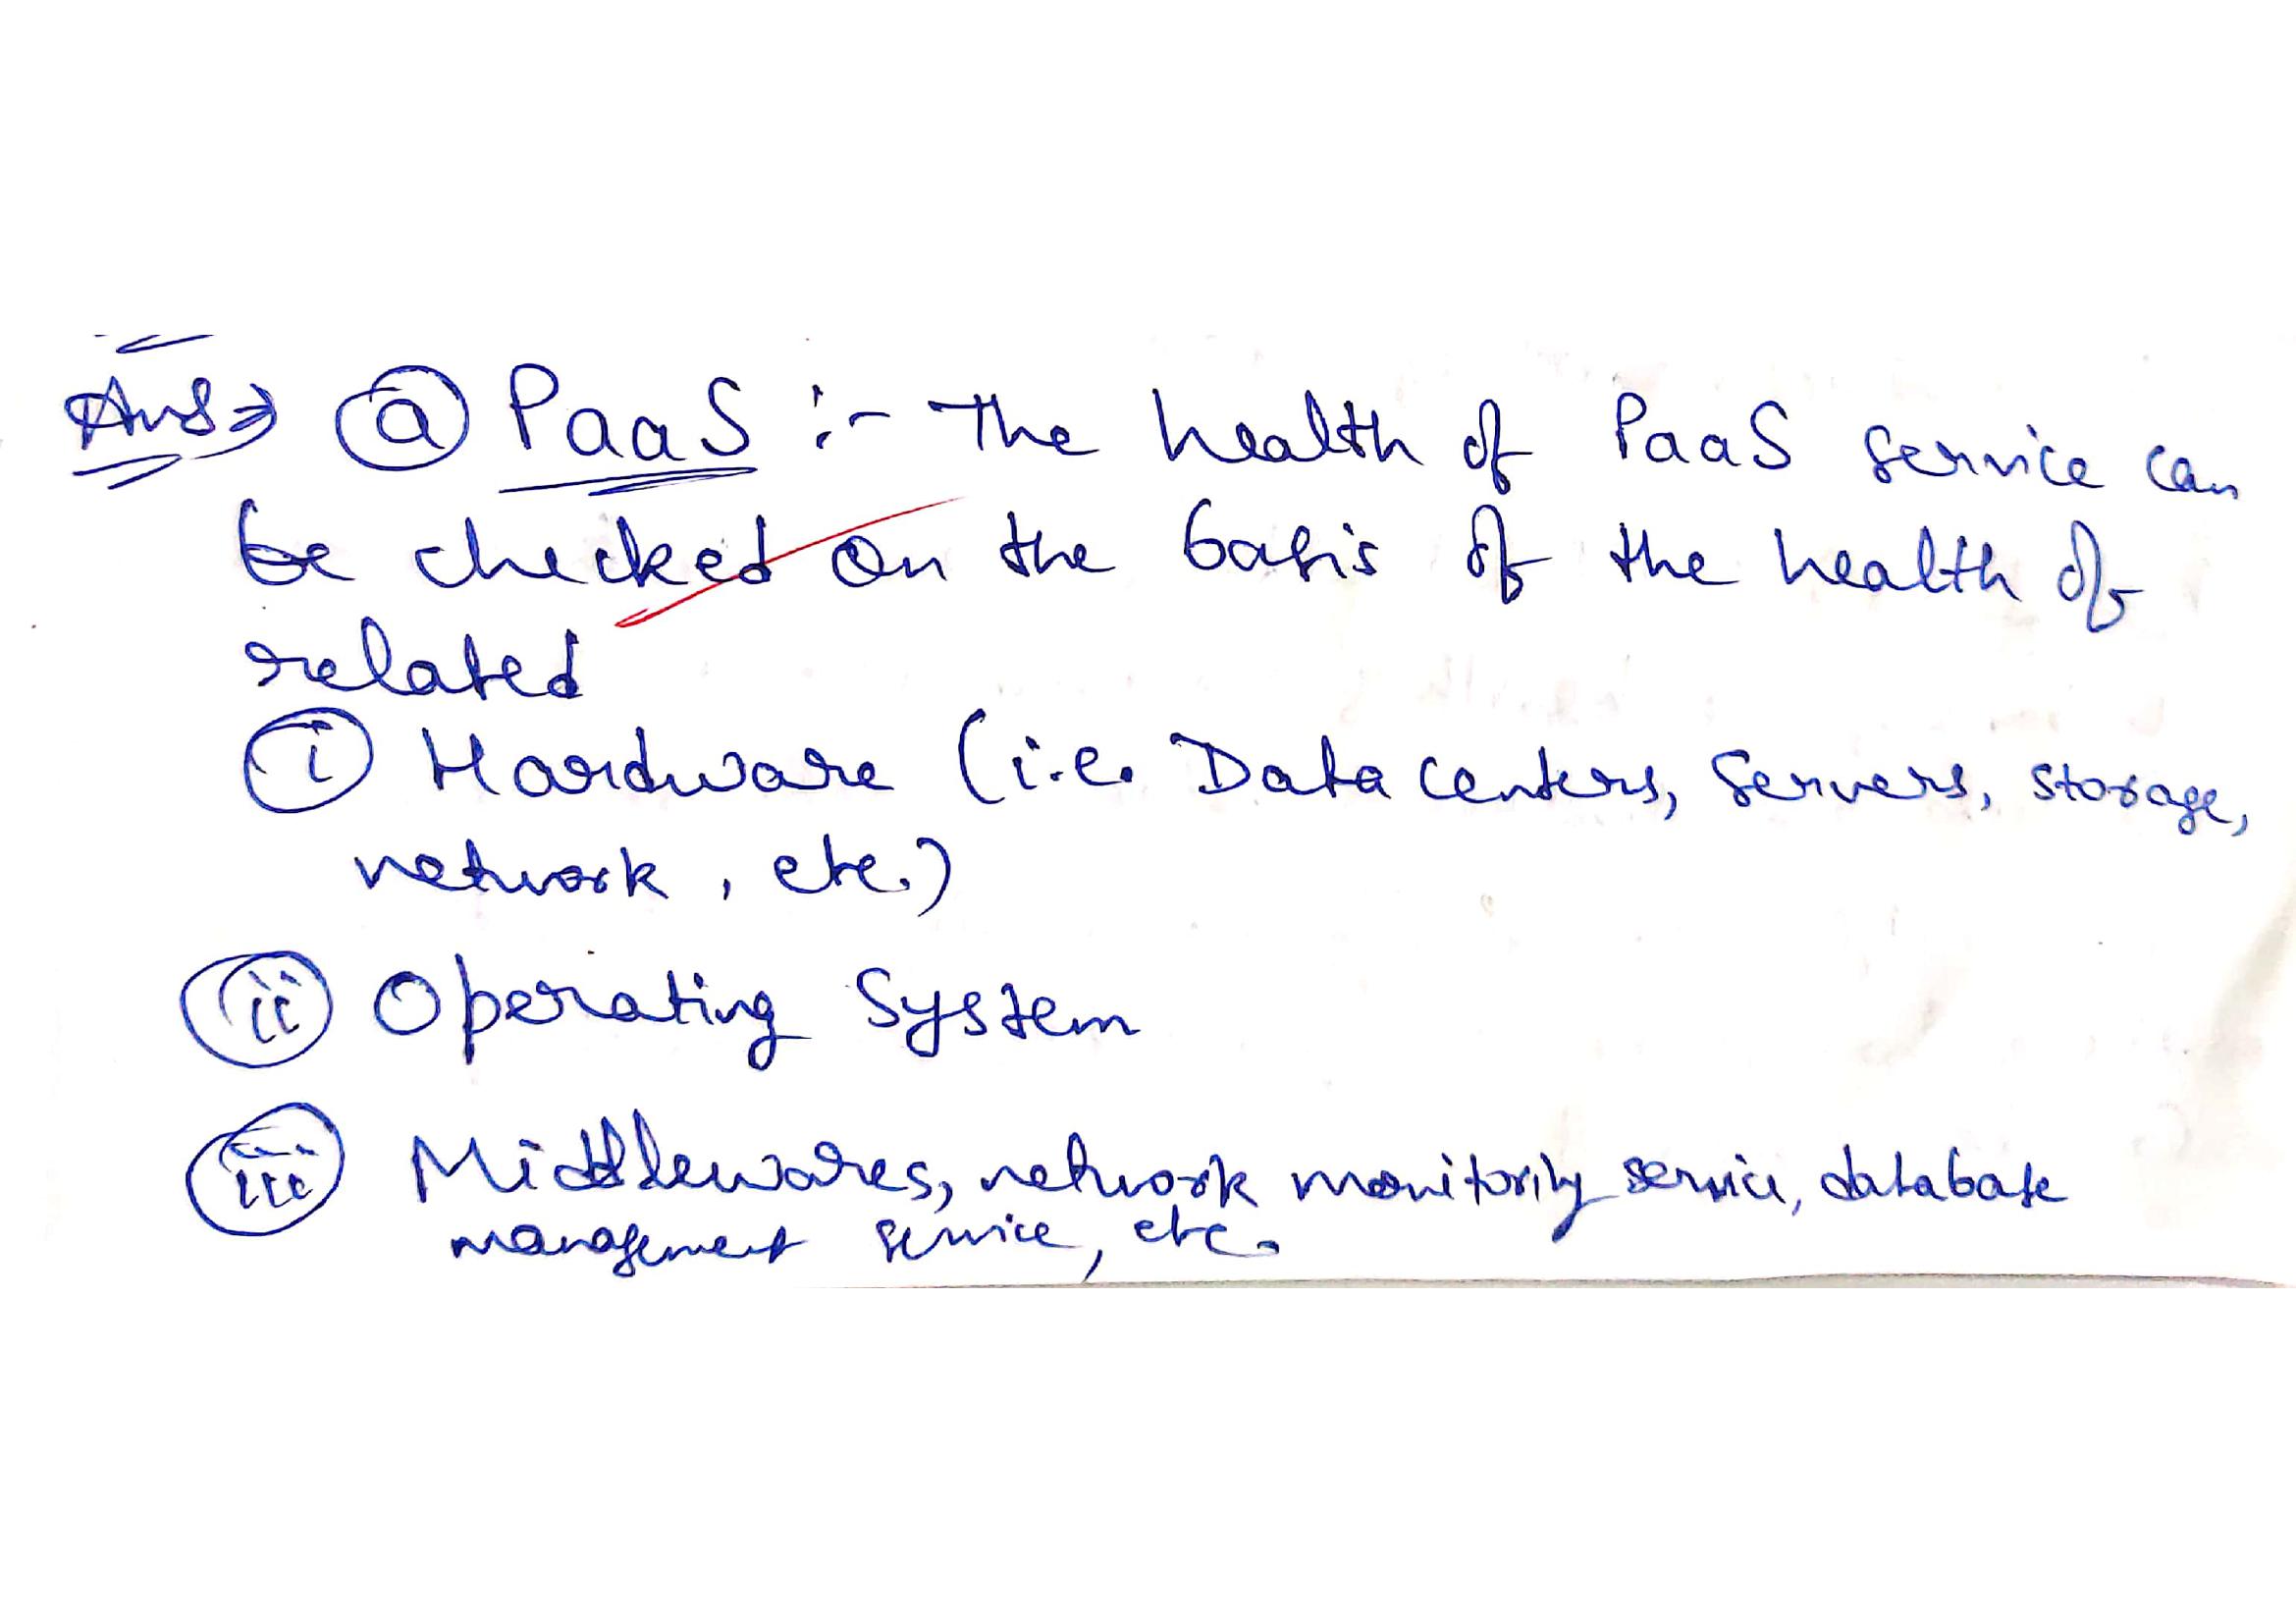 Ans⇒ ⓐ PaaS :- The health of PaaS service can
be checked on the basis of the health of
related
ⓘ Hardware (i.e. Data centers, Servers, storage,
network, etc.)
(ii) Operating System
(iii) Middlewares, network monitoring service, database
management service, etc.